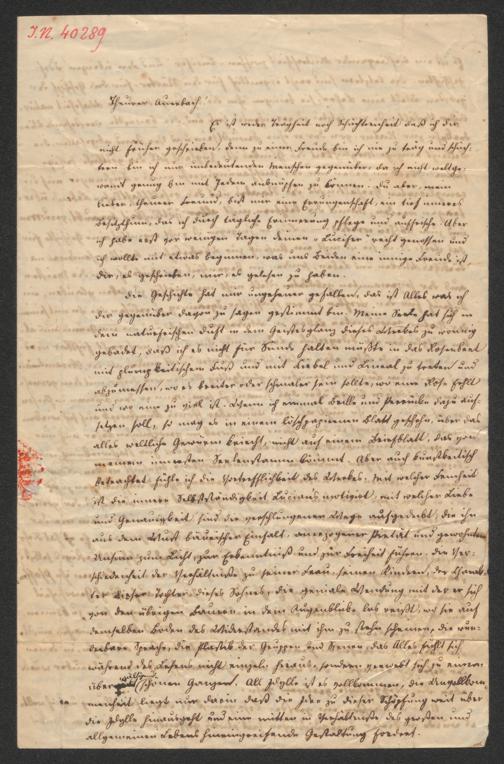 I.N. 40289
Theurer Auerbach.
Es ist weder Trägheit noch Schüchternheit daß ich dir
nicht früher geschrieben, denn zu einem Freunde bin ich nie zu träg und schüch-
tern bin ich nur unbedeutenden Menschen gegenüber, da ich nicht weltge-
wand genug bin mit Jedem anknüpfen zu können. Du aber, mein
lieber, theurer Freund, bist mir eine Errungenschaft, ein tief inneres
Besitzthum, das ich durch tägliche Erinnerung pflege und auffrische. Aber
ich habe erst vor wenigen Tagen deinen "Lucifer" recht genossen und
ich wollte mit etwas beginnen, was uns Beiden eine innige Freude ist
dir, es geschrieben, mir, es gelesen zu haben.
Die Geschichte hat mir ungeheuer gefallen, das ist Alles was ich
dir gegenüber davon zu sagen gestimmt bin. Meine Seele hat sich in
dem naturfrischen Duft in dem Geistesglanz dieses Werkes zu wonnig
gebadet, daß ich es nicht für Sünde halten müßte in das Rosenbeet
mit plump kritischem Fuß und mit Winkel und Lineal zu treten und
abzumessen, wo es breiter oder schmaler sein sollte, wo eine Rose fehlt
und wo eine zu viel ist. Wenn ich einmal Brille und Perrücke dazu auf-
setzen soll, so mag es in einem löschpapiernen Blatt geschehn, über das
alles weltliche Gewürm kriecht, nicht auf einem Briefblatt, das von
meinem innersten Seelenstamm kömmt. Aber auch kunstkritisch
betrachtet fühle ich die Vortrefflichkeit des Werkes. Mit welcher Feinheit
ist die innere Selbstständigkeit Lucians motivirt, mit welcher Liebe
und Genauigkeit sind die verschlungenen Wege aufgedeckt, die ihn
aus dem Wust bäurischer Einfalt, anerzogener Pietät und gewohnten
Unsinn zum Licht, zur Erkenntniß und zur Freiheit führen, die Ver-
schiedenheit der Verhältniße zu seiner Frau, seinen Kindern, der Charak-
ter dieser Tochter dieses Sohnes, die geniale Wendung mit der er sich
von den übrigen Bauern in dem Augenblicke los reißt, wo sie auf
demselben Boden des Widerstandes mit ihm zu stehn scheinen, die wun-
derbare Sprache, die Plastik der Gruppen und Scenen, das Alles hebt sich
während des Lesens nicht einzeln heraus, sondern verwebt sich zu einem
schönen Ganzen. Als Idylle ist es vollkommen, die Unvollkom-
menheit liegt nur darin daß die Idee zu dieser Schöpfung weit über
die Idylle hinausgeht und eine mitten in Verhältniße des großen und
allgemeinen Lebens hineingreifende Gestaltung fordert.